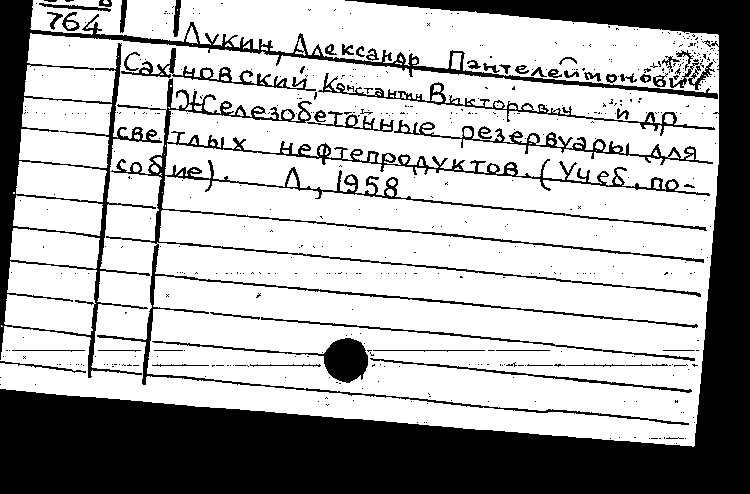 764
Лукин, Александр Пантелеймонович,
Сахновский, Константин Викторович и др.
Железобетонные резервуары для
светлых нефтепродуктов. (Учеб. по-
собие). Л., 1958.